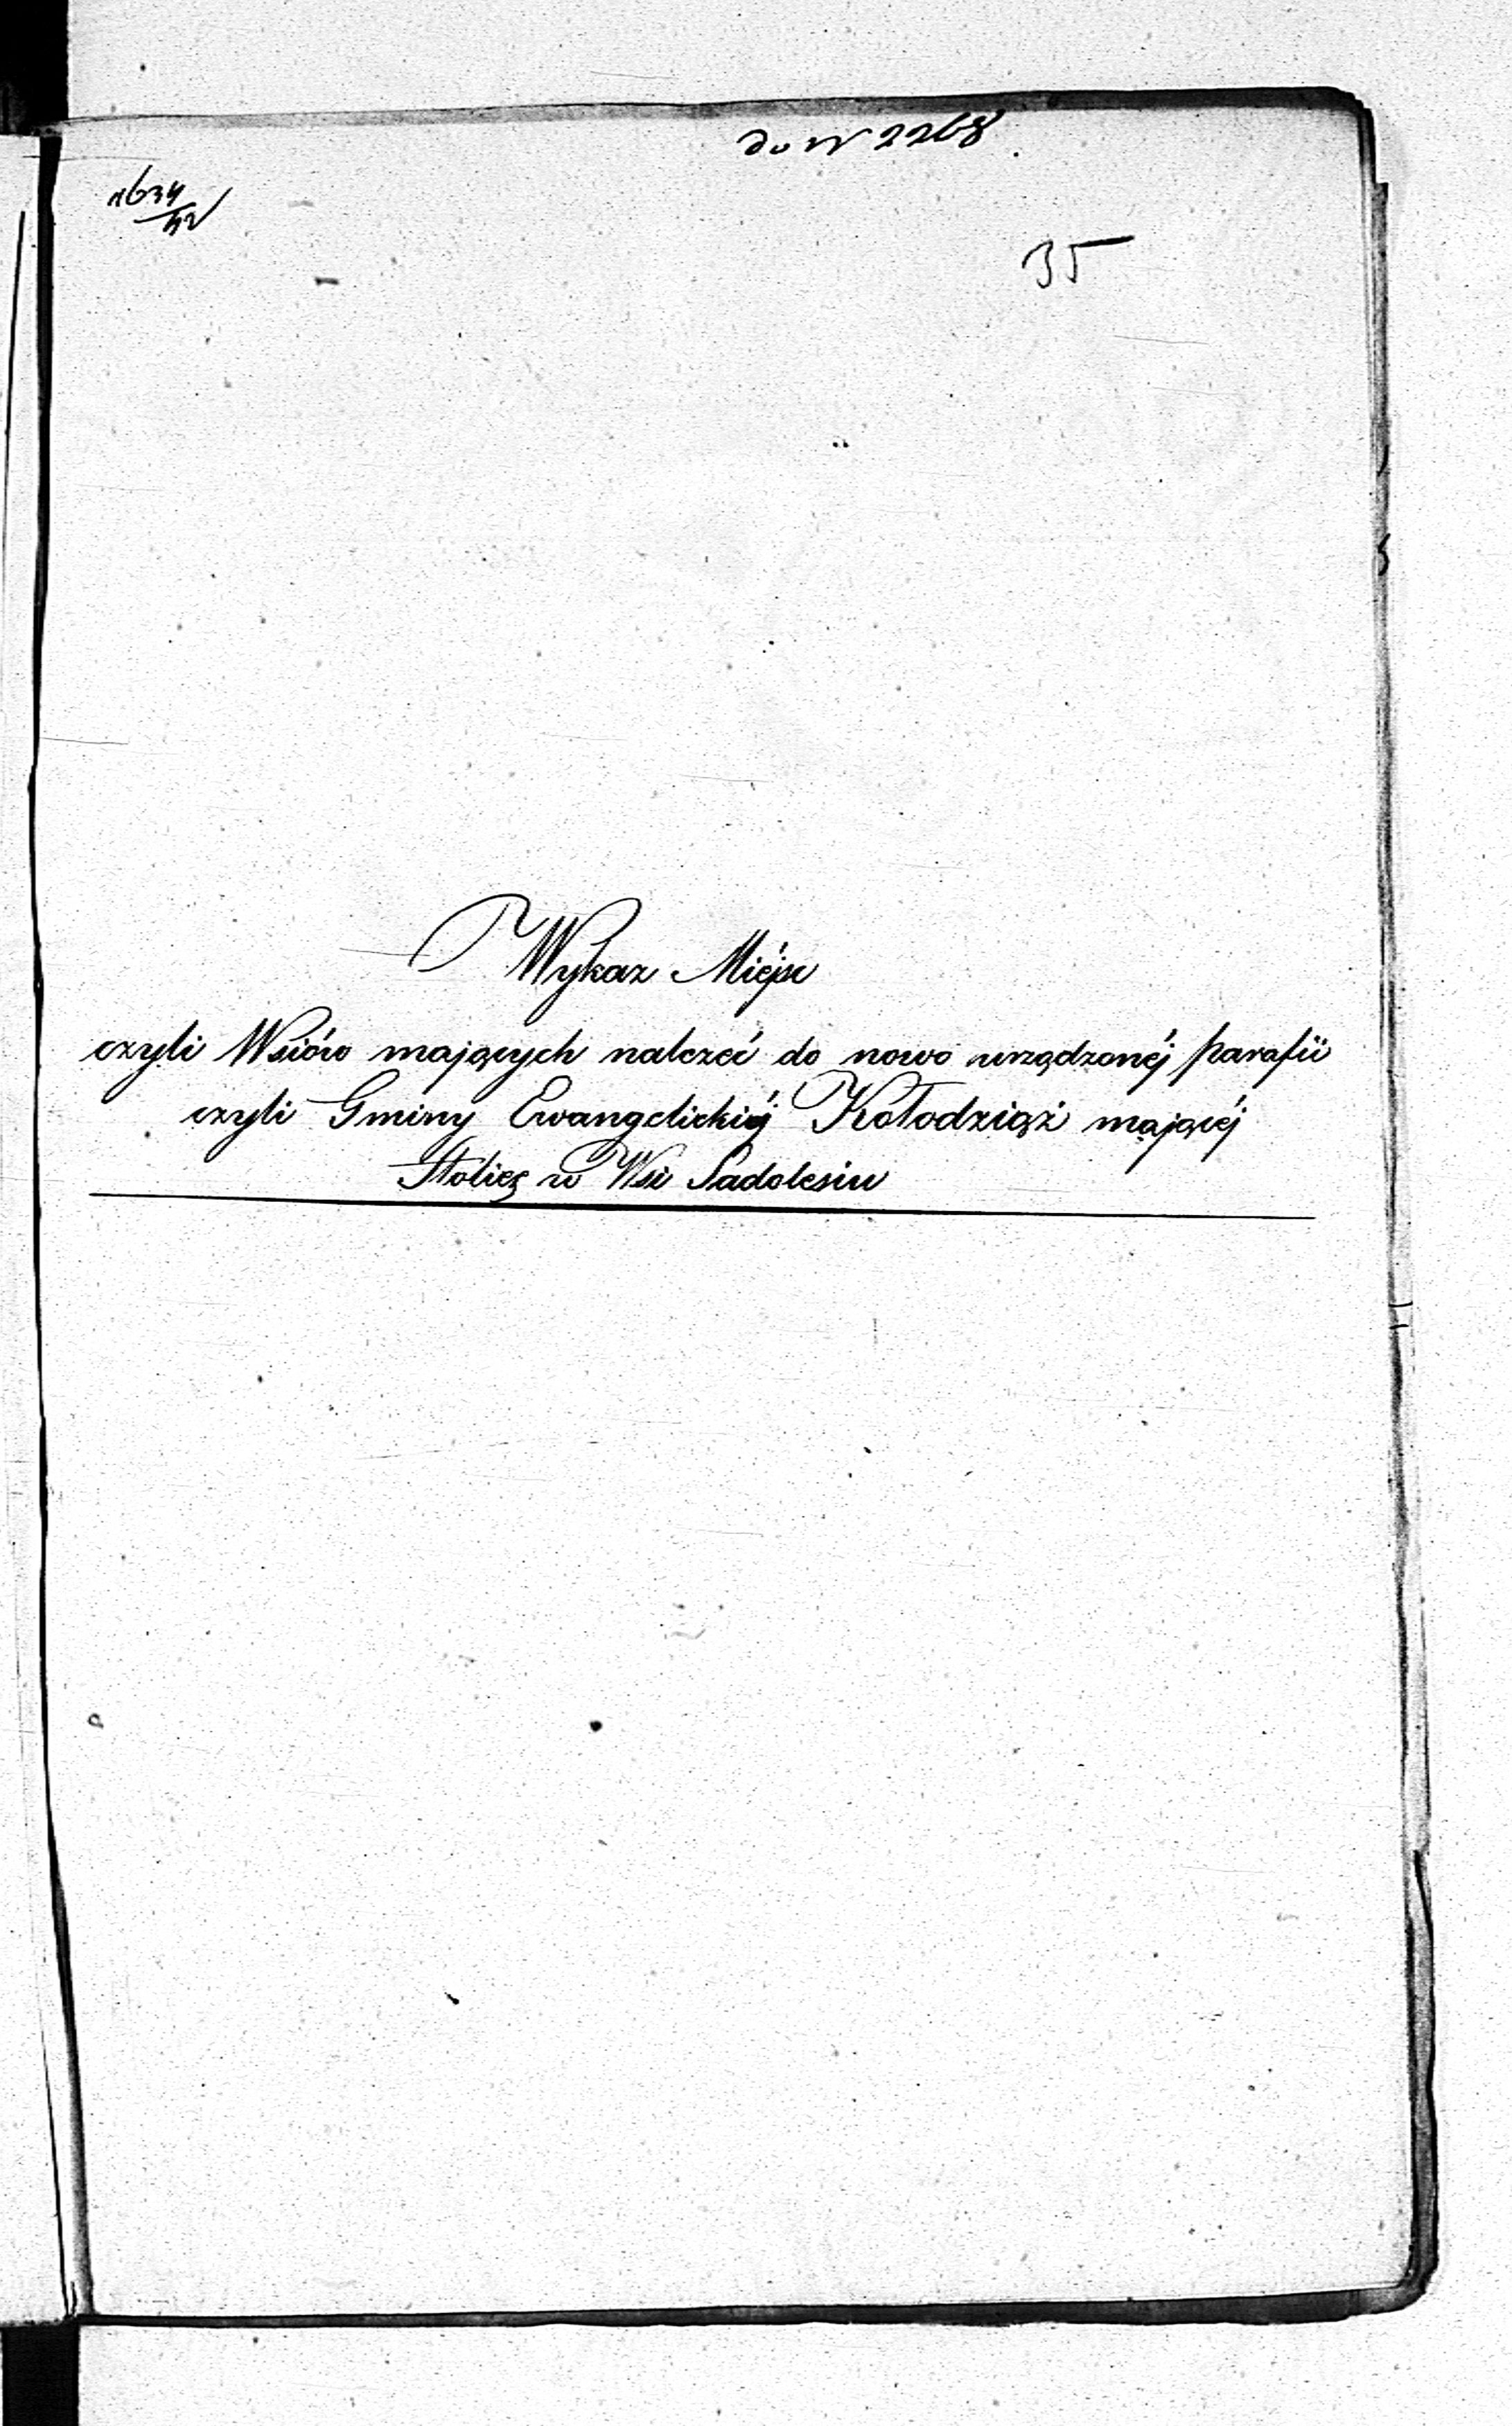 do N 2268
35
Wykaz Miéjsc
czyli Wsiów mających należeć do nowo urządzonéj parafii
czyli Gminy Ewangelickiéj Kołodziąż mającéj
Stolicę w Wsi Sadolesiu